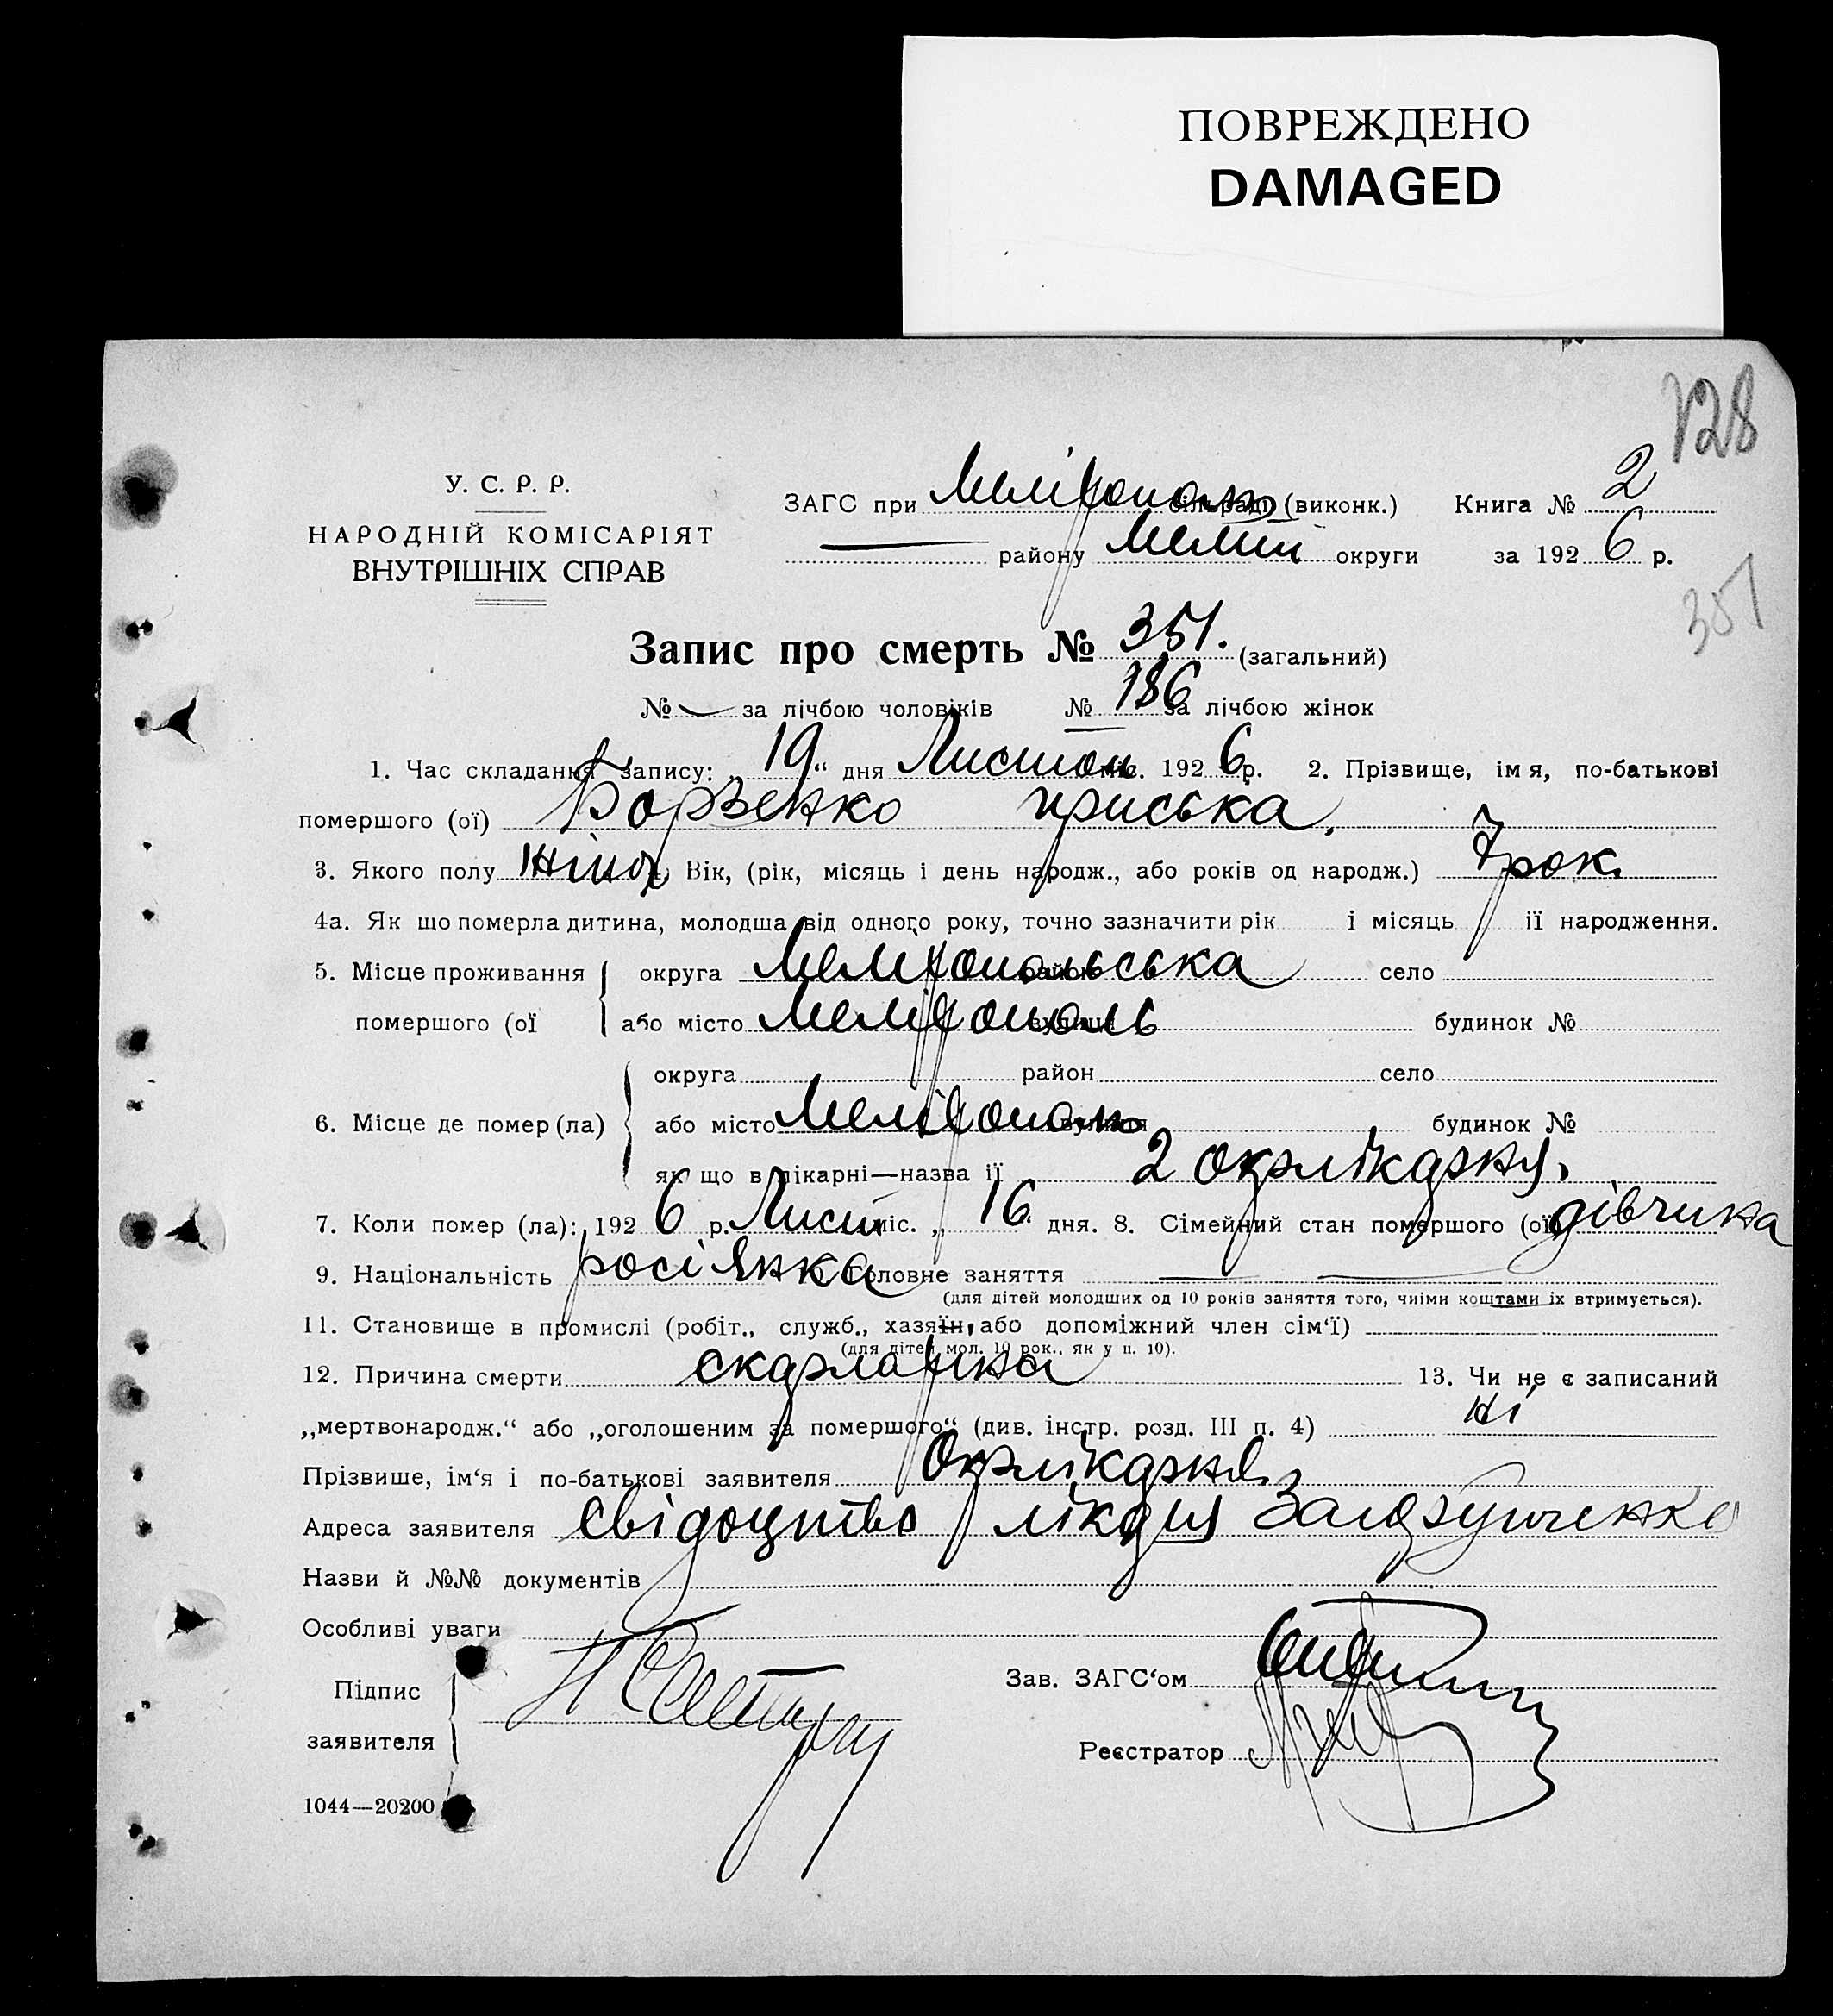 ПОВРЕЖДЕНО
DAMAGED
128
У. С. Р. Р.
НАРОДНІЙ КОМІСАРІЯТ
ВНУТРІШНІХ СПРАВ
ЗАГС при Мелітополь сільраді (виконк.) Книга № 2
району Меліт округи за 1926 р.
351
Запис про смерть № 351. (загальний)
№ — за лічбою чоловіків № 186 за лічбою жінок
1. Час складання запису: „19“ дня Листоп міс. 1926 р. 2. Прізвище, імя, по-батькові
помершого (ої) Борзенко Приська.
3. Якого полу жіноч 4. Вік, (рік, місяць і день народж., або років од народж.) 7 рок.
4а. Як що померла дитина, молодша від одного року, точно зазначити рік і місяць її народження.
5. Місце проживання округа Мелітопольська район село
помершого (ої або місто Мелітополь вулиця будинок №
округа район село
6. Місце де помер (ла) або місто Мелітополь вулиця будинок №
як що в лікарні—назва її 2 Окрлікарня.
7. Коли помер (ла): 1926 р. Лист міс. „16“ дня. 8. Сімейний стан помершого (ої) дівчинка
9. Національність росіянка 10 Головне заняття —
(для дітей молодших од 10 років заняття того, чиїми коштами їх втримується).
11. Становище в промислі (робіт., служб., хазяїн, або допоміжний член сім‘ї)
(для дітей мол. 10 рок., як у п. 10).
12. Причина смерти скарлатина 13. Чи не є записаний
„мертвонародж.“ або „оголошеним за помершого“ (див. інстр. розд. III п. 4) Ні
Прізвише, ім‘я і по-батькові заявителя Окрлікарня
Адреса заявителя Свідоцтво лікаря
Назви й №№ документів
Особливі уваги
Підпис
заявителя
Зав. ЗАГС‘ом
Реєстратор
1044—20200